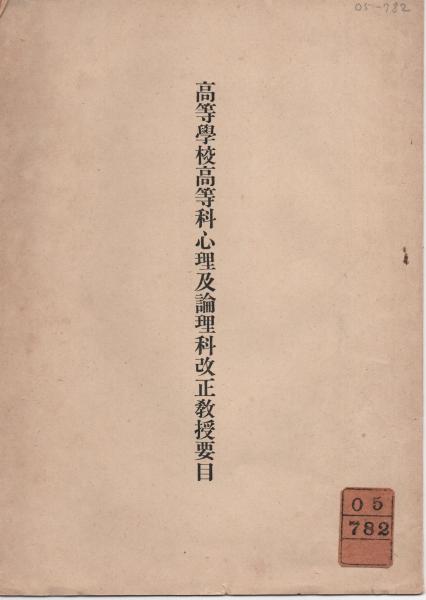 05-782
高等學校高等科心理及論理科改正敎授要目
05
782